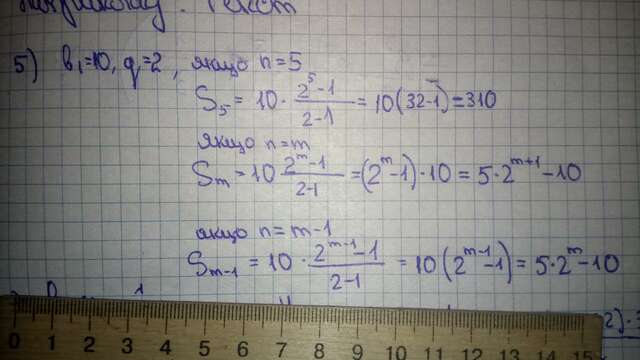 Текст
5) b₁=10, q=2, якщо n=5
S₅ = 10 · (2⁵-1)/(2-1) = 10(32-1)=310
якщо n=m
Sₘ = 10 (2ᵐ-1)/(2-1) = (2ᵐ-1)·10 = 5·2ᵐ⁺¹-10
якщо n=m-1
Sₘ₋₁ = 10 · (2ᵐ⁻¹-1)/(2-1) = 10(2ᵐ⁻¹-1) = 5·2ᵐ-10
0 1 2 3 4 5 6 7 8 9 10 11 12 13 14 15